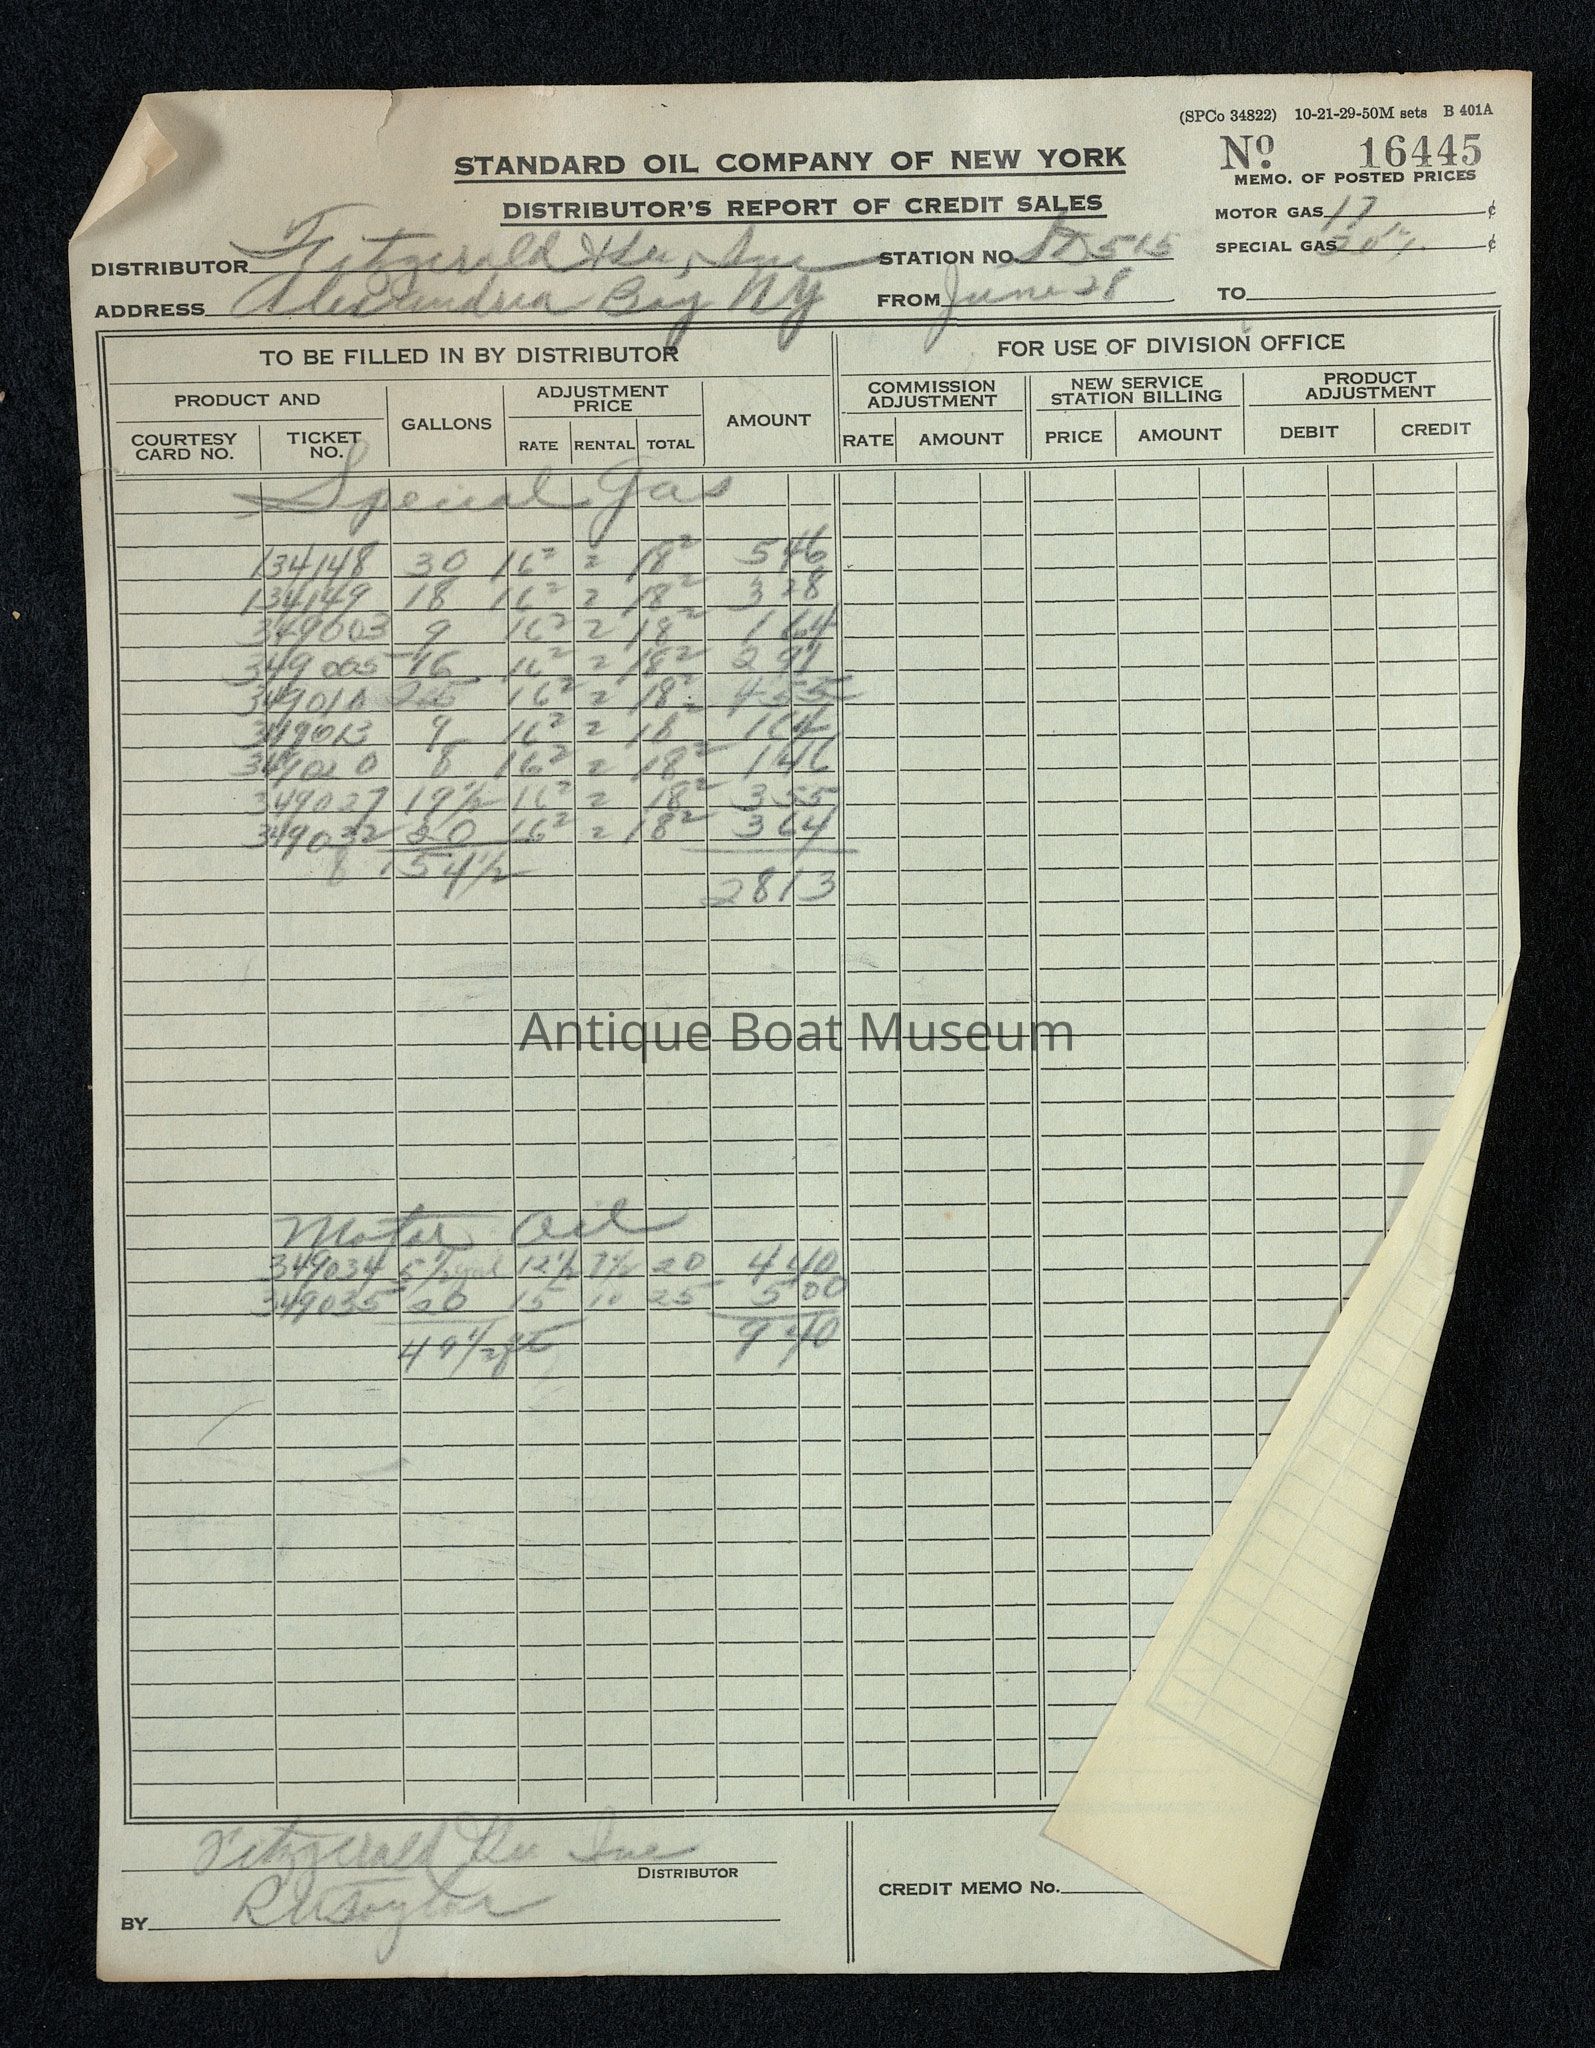 (SPCo 34822) 10-21-29-50M sets B 401A
STANDARD OIL COMPANY OF NEW YORK
No. 16445
MEMO. OF POSTED PRICES
DISTRIBUTOR'S REPORT OF CREDIT SALES
MOTOR GAS 17 ¢
DISTRIBUTOR Fitzgerald & Lee, Inc
STATION NO. 515
SPECIAL GAS ¢
ADDRESS Alexandria Bay NY
FROM June 28
TO
TO BE FILLED IN BY DISTRIBUTOR
FOR USE OF DIVISION OFFICE
PRODUCT AND
GALLONS
ADJUSTMENT PRICE
AMOUNT
COMMISSION ADJUSTMENT
NEW SERVICE STATION BILLING
PRODUCT ADJUSTMENT
COURTESY CARD NO.
TICKET NO.
RATE RENTAL TOTAL
RATE AMOUNT
PRICE AMOUNT
DEBIT CREDIT
Special Gas
134148 30 16² 2 18² 5 46
134149 18 16² 2 18² 3 28
349003 9 16² 2 18² 1 64
349005 16 16² 2 18² 2 91
349010 25 16² 2 18² 4 55
349013 9 16² 2 18² 1 64
349020 8 16² 2 18² 1 46
349027 19½ 16² 2 18² 3 55
349032 20 16² 2 18² 3 64
154½
28 13
Antique Boat Museum
Motor Oil
349034 5½ gal 12½ 7½ 20 4 40
349035 20 15 10 25 5 00
9 40
Fitzgerald & Lee Inc
DISTRIBUTOR
BY Taylor
CREDIT MEMO No.